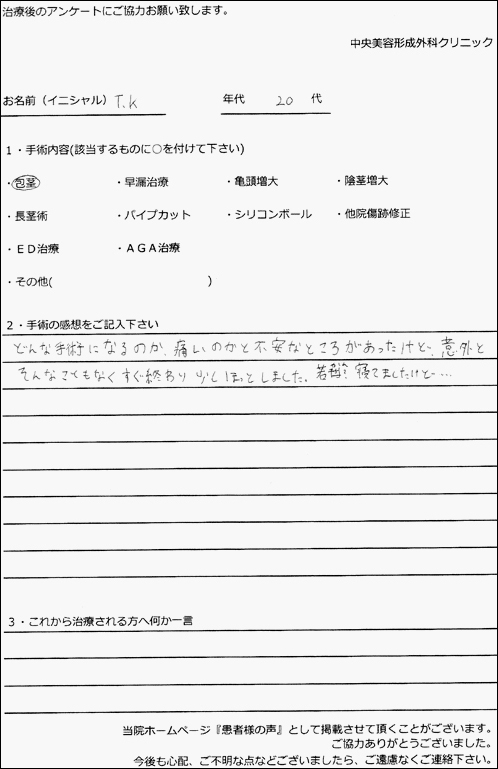 治療後のアンケートにご協力お願い致します。
中央美容形成外科クリニック
お名前（イニシャル） T.K 年代 20 代
１・手術内容(該当するものに○を付けて下さい)
・包茎 ・早漏治療 ・亀頭増大 ・陰茎増大
・長茎術 ・パイプカット ・シリコンボール ・他院傷跡修正
・ＥＤ治療 ・ＡＧＡ治療
・その他( )
２・手術の感想をご記入下さい
どんな手術になるのか、痛いのかと不安なところがあったけど、意外と
そんなこともなくすぐ終わり 少しほっとしました。若干 寝てましたけど…
３・これから治療される方へ何か一言
当院ホームページ『患者様の声』として掲載させて頂くことがございます。
ご協力ありがとうございました。
今後も心配、ご不明な点などございましたら、ご遠慮なくご連絡下さい。